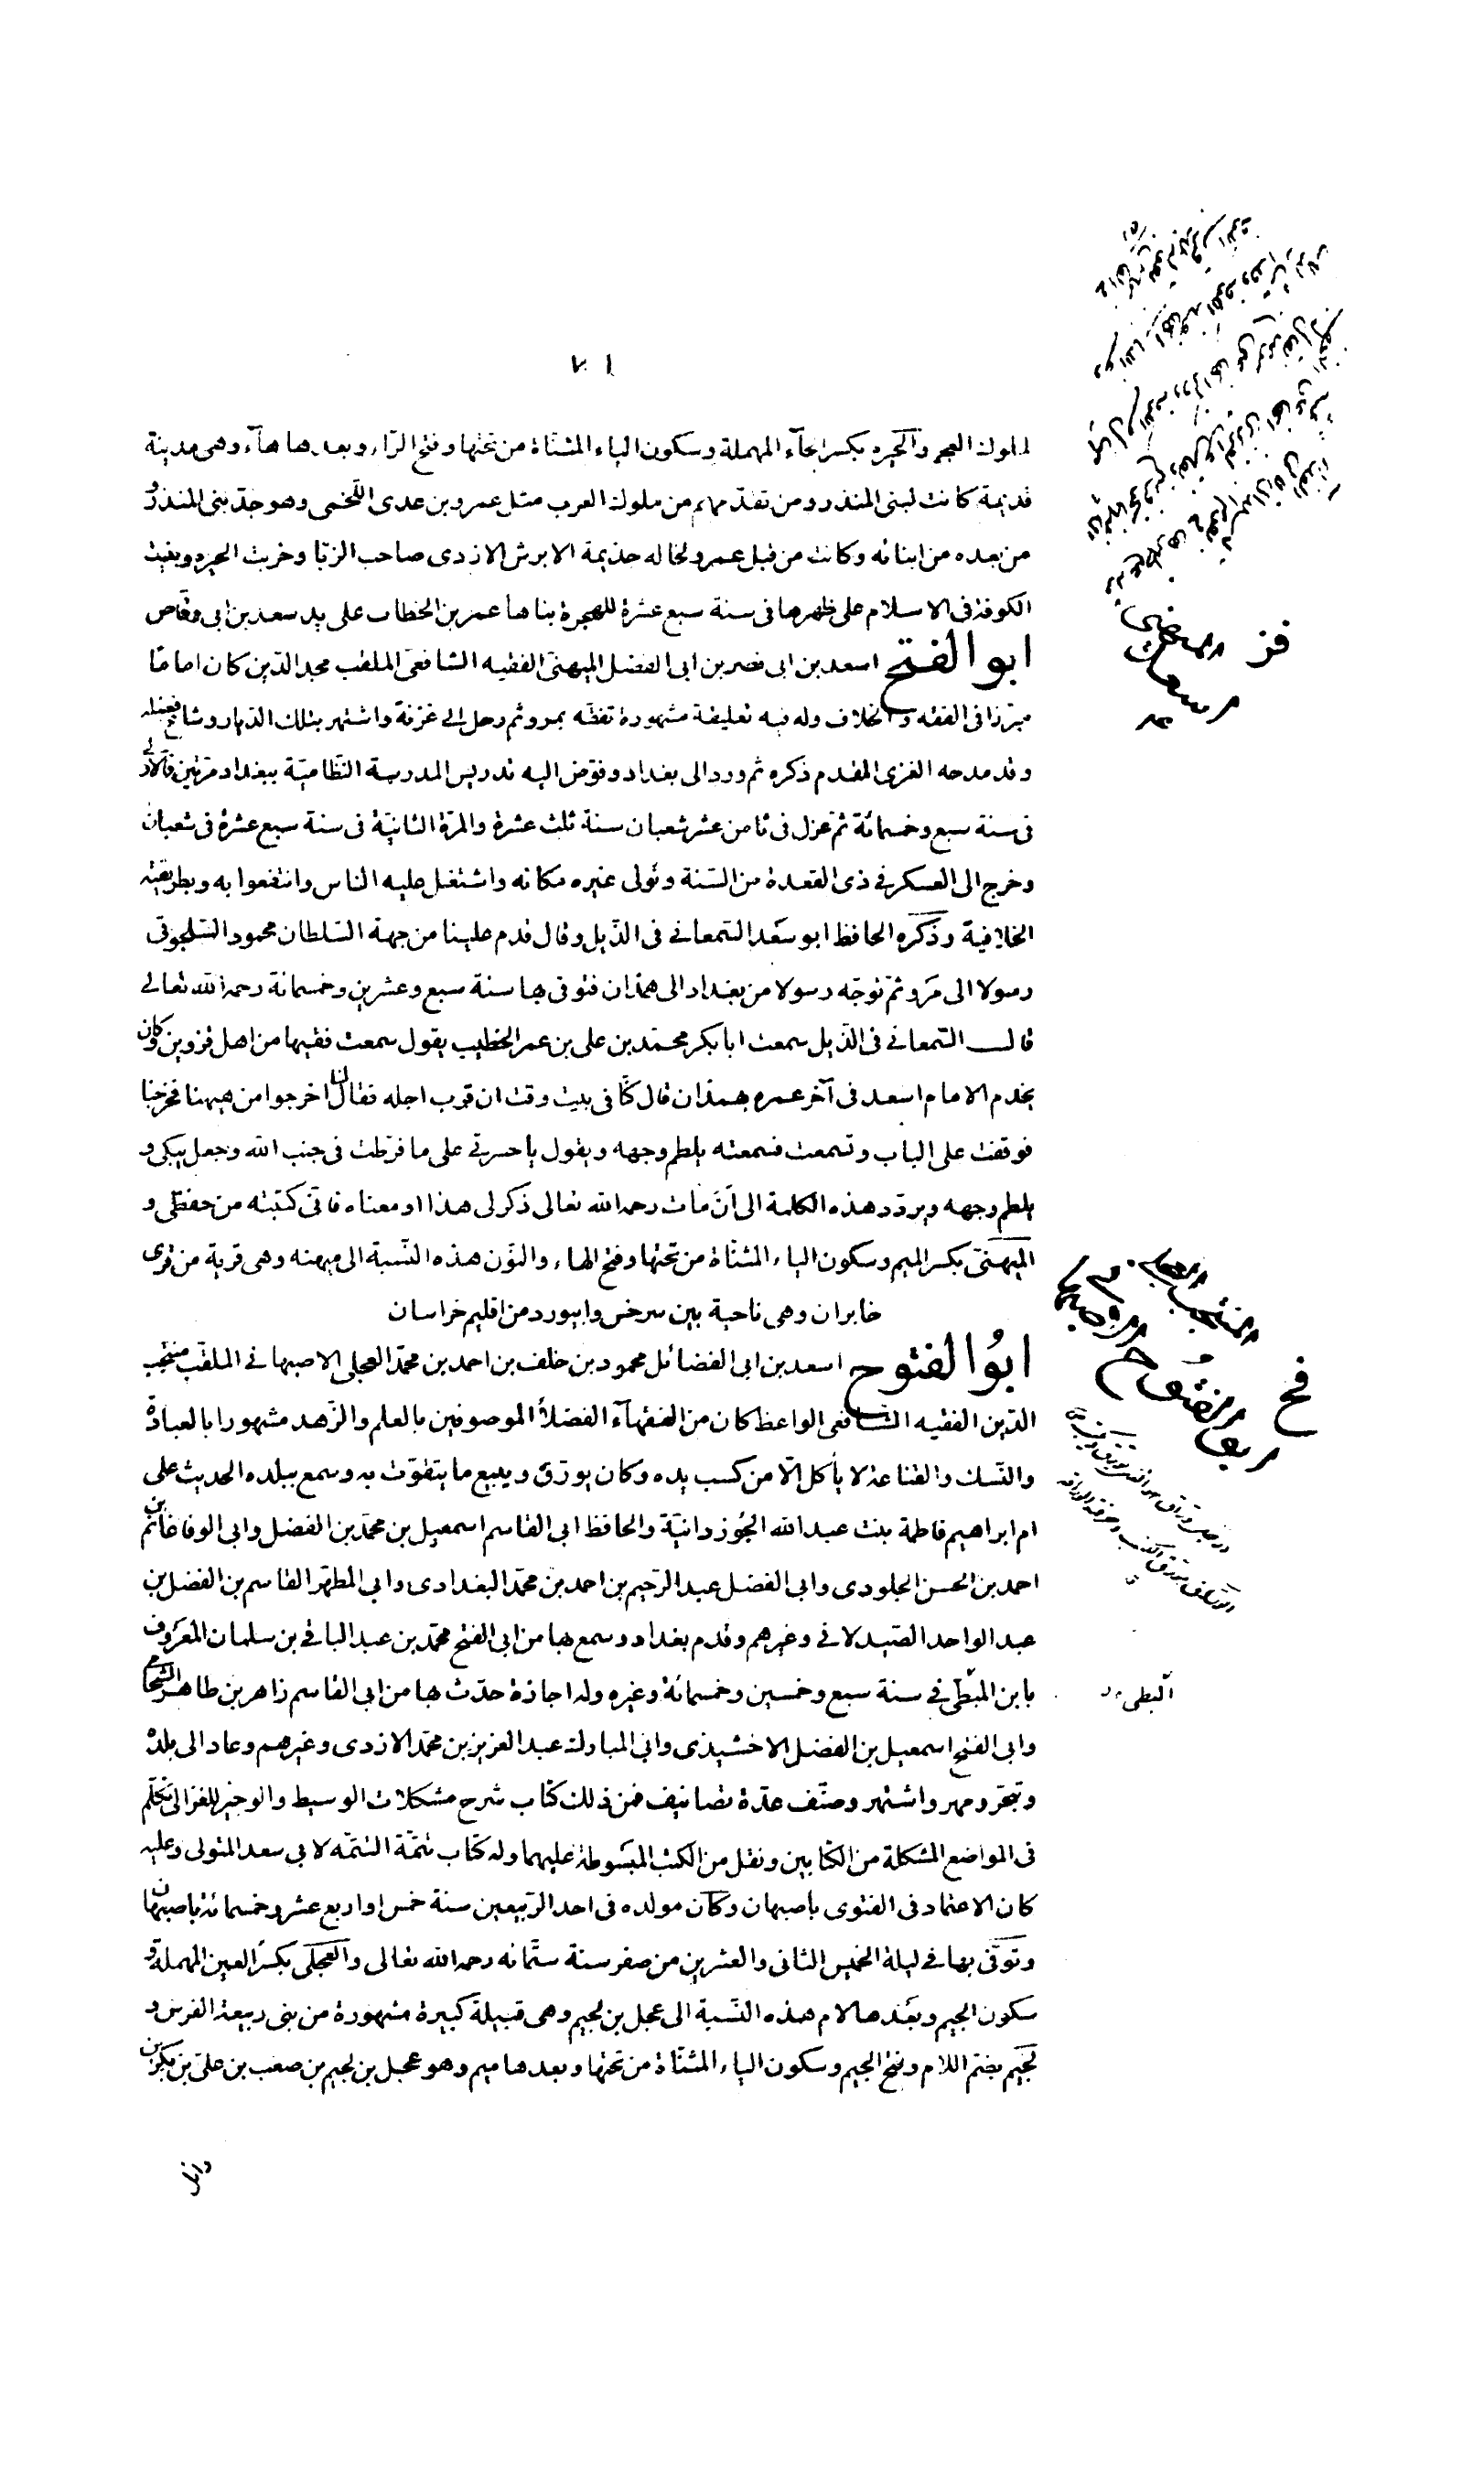 ٧١
لملوك العجم والحيره بكسر الحآء المهملة وسكون الياء المثنّاة من تحتها وفتح الرّاء وبعدها هآء وهى مدينة
قديمة كانت لبنى المنذر ومن تقدّمهم من ملوك العرب مثل عمرو بن عدى اللّخمى وهو جدّ بنى المنذر و
من بعده من ابنائه وكانت من قبل عمرو لخاله جذيمة الابرش الازدى صاحب الزبّا وخربت الحيره وبقيت
الكوفة فى الاسلام على ظهرها فى سنة سبع عشرة للهجرة بناها عمر بن الخطاب على يد سعد بن ابى وقّاص
ابو الفتح اسعد بن ابى نصر بن ابى الفضل الميهنىّ الفقيه الشافعىّ الملقب مجد الدّين كان امامًا
مبرّزا فى الفقه والخلاف وله فيه تعليقة مشهورة تفقّه بمرو ثم رحل الى غزنة واشتهر بتلك الديار وشاع فضله
وقد مدحه الغزى المقدم ذكره ثم ورد الى بغداد وفوّض اليه تدريس المدرسة النّظاميّة ببغداد مرّتين فالاولى
فى سنة سبع وخمسمائة ثم عزل فى ثامن عشر شعبان سنة ثلث عشرة والمرّة الثانيّة فى سنة سبع عشرة فى شعبان
وخرج الى العسكر فى ذى القعدة من السّنة وتولى غيره مكانه واشتغل عليه الناس وانتفعوا به وبطريقته
الخلافية وذكره الحافظ ابو سَعد السّمعانى فى الذّيل وقال قدم علينا من جهة السّلطان محمود السّلجوقى
رسولا الى مَرو ثمّ توجّه رسولا من بغداد الى همذان فتوفى بها سنة سبع وعشرين وخمسمائة رحمه الله تعالى
قال السّمعانى فى الذّيل سمعت ابا بكر محمّد بن على بن عمر الخطيب يقول سمعت فقيها من اهل قزوين وكان
يخدم الامام اسعد فى آخر عمره بهمذان قال كنّا فى بيت وقت ان قرب اجله فقال لنا اخرجوا من ههنا فخرجنا
فوقفت على الباب وتسمعت فسمعته يلطم وجهه ويقول يا حسرتى على ما فرّطت فى جنب الله وجعل يبكى و
يلطم وجهه ويردّد هذه الكلمة الى اَنْ مات رحمه الله تعالى ذكر لى هذا او معناه فانّى كتبته من حفظى و
الميهنىّ بكسر الميم وسكون الياء المثنّاة من تحتها وفتح الهاء والنّون هذه النّسبة الى ميهنه وهى قرية من قرى
خابران وهى ناحية بين سرخس وابيورد من اقليم خراسان
ابُو الفتوح اسعد بن ابى الفضائل محمود بن خلف بن احمد بن محمّد العجلى الاصبهانى الملقّب منتخب
الدّين الفقيه الشافعى الواعظ كان من الفقهآء الفضلآء الموصوفين بالعلم والزّهد مشهورا بالعبادة
والنّسك والقناعة لا يأكل الّا من كسب يده وكان يورّق ويبيع ما يتقوّت به وسمع ببلده الحديث على
ام ابراهيم فاطمة بنت عبد الله الجُوزدانيّة والحافظ ابى القاسم اسمعيل بن محمّد بن الفضل وابى الوفا غانم بن
احمد بن الحسن الجلودى وابى الفضل عبد الرّحيم بن احمد بن محمّد البغدادى وابى المطهّر القاسم بن الفضل بن
عبد الواحد الصّيدلانى وغيرهم وقدم بغداد وسمع بها من ابى الفتح محمّد بن عبد الباقى بن سلمان المعَروف
بابن المبّطى فى سنة سبع وخمسين وخمسمائة وغيره وله اجازة حدّث بها من ابى القاسم زاهر بن طاهر الشحامى
وابى الفتح اسمعيل بن الفضل الاخشيذى وابى المبارك عبد العزيز بن محمّد الازدى وغيرهم وعاد الى بلده
وتبحّر ومهر واشتهر وصنّف عدّة تصانيف فمن ذلك كتاب شرح مشكلات الوسيط والوجيز للغزالى تكلّم
فى المواضع المشكلة من الكتابين ونقل من الكتب المبَسُوطة عليهما وله كتاب تتمّة التتمّه لابى سعد المتولى وعليه
كان الاعتماد فى الفتوى باصبهان وكان مولده فى احد الرّبيعين سنة خمس او اربع عشر وخمسمائة باصبهان
وتوّفى بها فى ليلة الخميس الثانى والعشرين من صفر سنة ستّمائه رحمه الله تعالى والعجلى بكسَر العين المهملة و
سكون الجيم وبعَدها لام هذه النّسبة الى عجل بن لجيم وهى قبيلة كبيرة مشهورة من بنى ربيعة الفرس و
لجَيم بضّم اللام وفتح الجيم وسكون الياء المثنّاة من تحتها وبعدها ميم وهو عجل بن لجيم بن صعب بن علىّ بن بكر بن
وائل
فز
اسعد
الميهنى
فح
ابو الفتوح
البطى